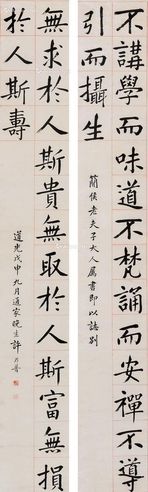 不講學而味道不梵誦而安禪不導
引而攝生
簡侯老夫子大人屬書即以誌別
無求於人斯貴無取於人斯富無損
於人斯壽
道光戊申九月通家晚生許乃普